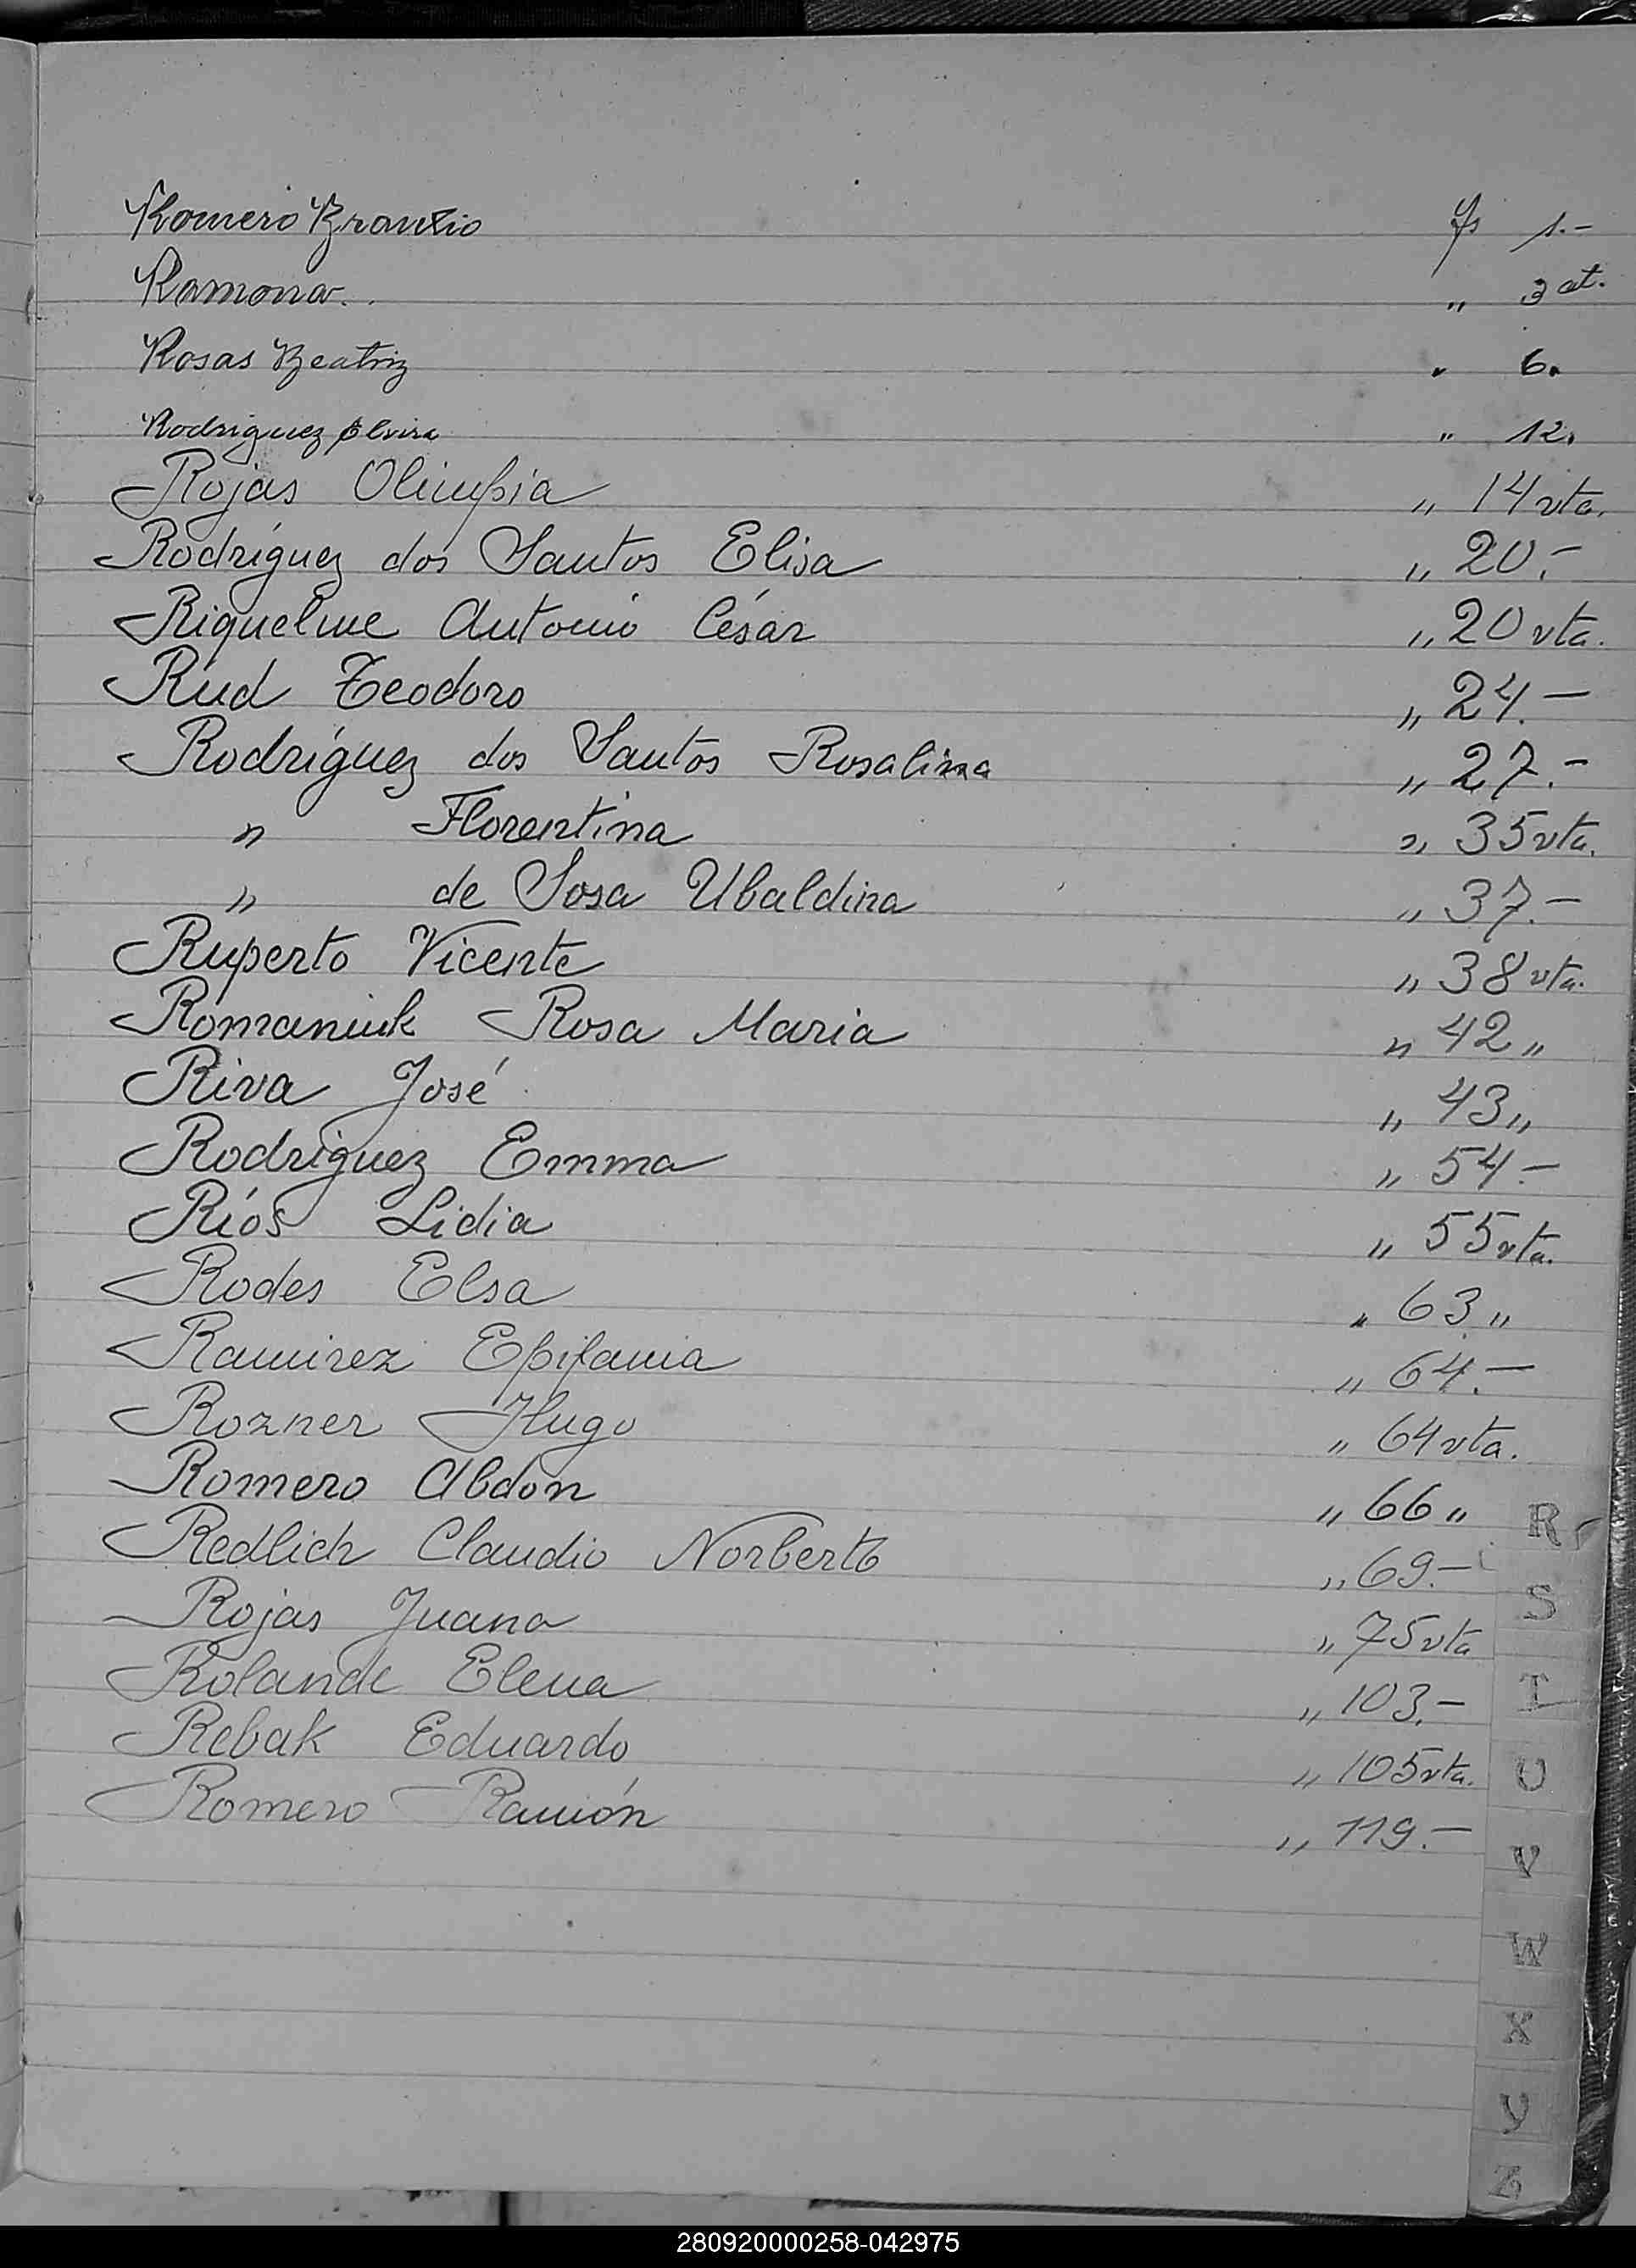 Romero Braulio fs 1.-
Ramona. „ 3 at.
Rosas Beatriz „ 6.
Rodriguez Elvira „ 12.
Rojas Olimpia „ 14 vta.
Rodríguez dos Santos Elisa „ 20.-
Riquelme Antonio César „ 20 vta.
Rud Teodoro „ 24.-
Rodríguez dos Santos Rosalina „ 27.-
„ Florentina „ 35 vta.
„ de Sosa Ubaldina „ 37.-
Ruperto Vicente „ 38 vta.
Romaniuk Rosa Maria „ 42 „
Riva José „ 43 „
Rodriguez Emma „ 54.-
Ríos Lidia „ 55 vta.
Rodes Elsa „ 63 „
Ramirez Epifania „ 64.-
Rozner Hugo „ 64 vta.
Romero Abdon „ 66 „
Redlich Claudio Norberto „ 69.-
Rojas Juana „ 75 vta
Rolande Elena „ 103.-
Rebak Eduardo „ 105 vta.
Romero Ramón „ 119.-
R
S
T
U
V
W
X
Y
Z
280920000258-042975